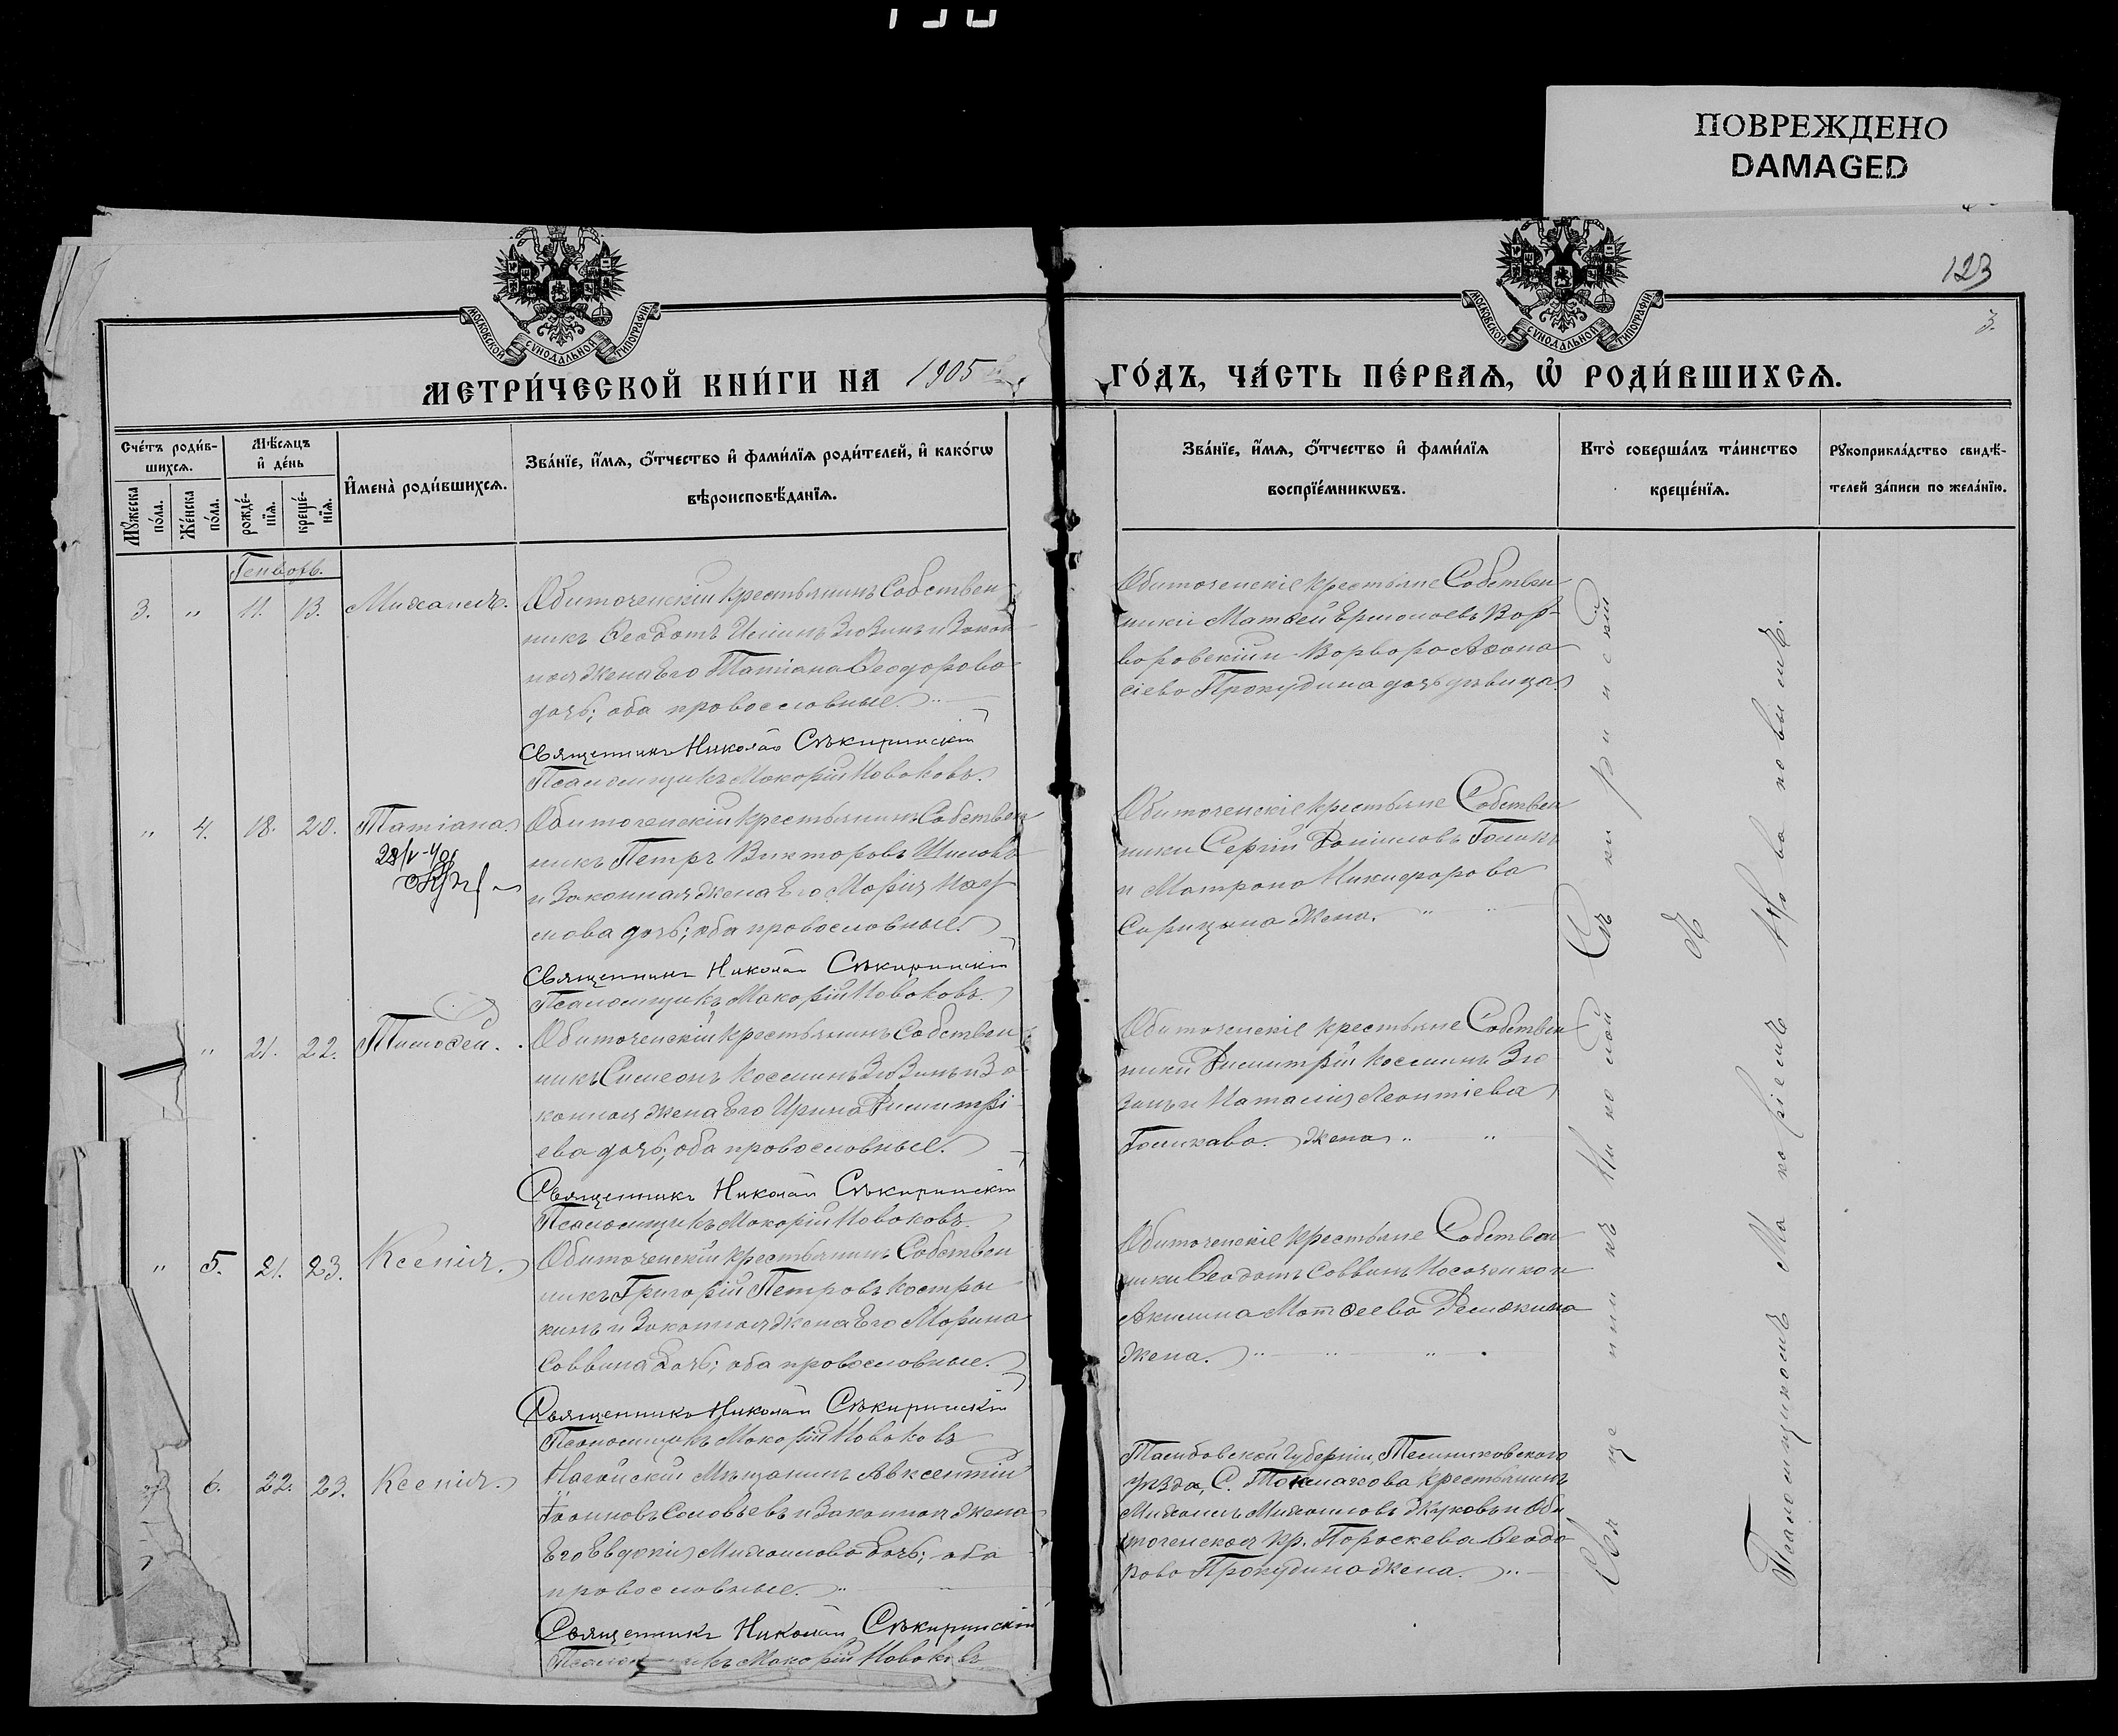 ПОВРЕЖДЕНО
DAMAGED
123
3.
МОСКОВСКОЙ СѴНОДАЛЬНОЙ ТИПОГРАФІИ
МОСКОВСКОЙ СѴНОДАЛЬНОЙ ТИПОГРАФІИ
МЕТРИ́ЧЕСКОЙ КНИ́ГИ НА 1905
ГО́ДЪ, ЧА́СТЬ ПЕ́РВАѦ, Ѽ РОДИ́ВШИХСѦ.
Сче́тъ роди́в-
шихсѧ.
Мѣ́сѧцъ
и҆ де́нь
Мꙋ́жеска
по́ла.
Же́нска
по́ла.
рожде́-
нїѧ.
креще́-
нїѧ.
И҆мена̀ роди́вшихсѧ.
Зва́нїе, и҆́мѧ, ѻ҆́тчество и҆ фами́лїѧ роди́телей, и҆ како́гѡ
вѣроисповѣ́данїѧ.
Зва́нїе, и҆́мѧ, ѻ҆́тчество и҆ фами́лїѧ
воспрїе́мникѡвъ.
Кто̀ соверша́лъ та́инство
креще́нїѧ.
Рꙋкоприкла́дство свидѣ́-
телей за́писи по жела́нїю.
Генварь.
3. " 11. 13. Михаилъ.
Обиточенскій крестьянинъ Собствен
никъ Ѳеодотъ Илiинъ Зюзинъ и Закон
ная жена Его Татiана Ѳеодорова
дочь; оба православные.
Священникъ Николай Сѣкиринскiй
Псаломщикъ Макарiй Новаковъ.
Обиточенскiе крестьяне Собствен
ники Матѳей Ермолаевъ Вар-
воровскiй и Варвара Аѳана
сiева Прокудина дочь дѣвица.
" 4. 18. 20. Татiана
28/V-40
Обиточенскiй крестьянинъ Собствен
никъ Петръ Викторовъ Шиловъ
и Законная жена Его Марiя Нау
мова дочь; оба православные.
Священникъ Николай Сѣкиринскiй
Псаломщикъ Макарiй Новаковъ.
Обиточенскiе крестьяне Собствен
ники Сергiй Данiиловъ Голикъ
и Матрона Никифорова
Сарицына жена.
" 21. 22. Тимоѳей.
Обиточенскiй крестьянинъ Собствен
никъ Симеонъ Косминъ Зюзинъ и За
конная жена Его Ирина Димитрi
ева дочь; оба православные.
Священникъ Николай Сѣкиринскiй
Псаломщикъ Макарiй Новаковъ.
Обиточенскiе крестьяне Собствен
ники Димитрiй Косминъ Зю
зинъ и Наталiя Леонтiева
Голикава жена
" 5. 21. 23. Ксенiя.
Обиточенскiй крестьянинъ Собствен
никъ Григорiй Петровъ Костры
кинъ и Законная жена Его Марина
Саввина дочь; оба православные.
Священникъ Николай Сѣкиринскiй
Псаломщикъ Макарiй Новаковъ
Обиточенскiе крестьяне Собствен
ники Ѳеодотъ Саввинъ Носаченко и
Акилина Матѳеева
жена.
6. 22. 23. Ксенiя.
Ногайскiй Мѣщанинъ Авксентiй
Iоанновъ Соловьевъ и Законная жена
Его Евдокiя Михаилова дочь; оба
православные.
Священникъ Николай Сѣкиринскiй
Псаломщикъ Макарiй Новаковъ
Тамбовской Губернiи, Темниковскаго
уѣзда, С. Токмакова крестьянинъ
Михаилъ Михаиловъ Жуковъ и Оби
точенская кр. Параскева Ѳеодо
рова Прокудина жена.
Священникъ Николай Сѣкиринскiй
съ
Псаломщикомъ Макарiемъ Новаковымъ.